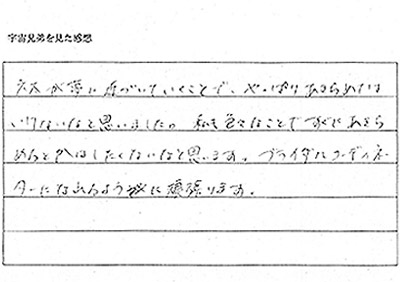 宇宙兄弟を見た感想
六太が夢に近づいていくことで、やっぱりあきらめては
いけないなと思いました。私も色々なことですぐにあきら
めんとかはしたくないなと思います。ブライダルコーディネー
ターになれるように頑張ります。